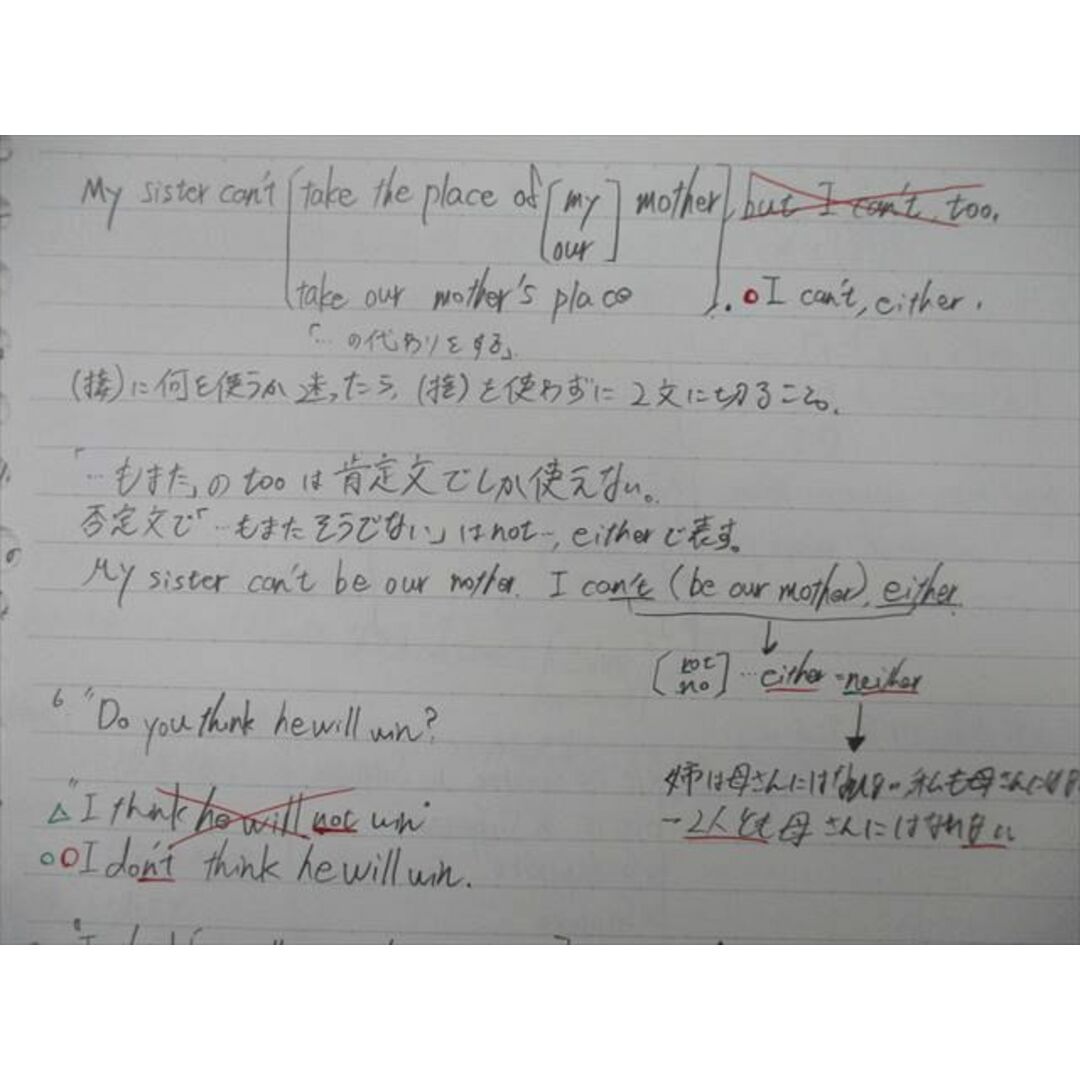 My sister can't [take the place of [my] mother], but I can't, too.
[our]
take our mother's place . ○I can't, either.
「…の代わりをする」
(接)に何を使うか迷ったら、(接)を使わずに2文に切ること。
「…もまた」のtooは肯定文でしか使えない。
否定文で「…もまたそうでない」はnot…, eitherで表す。
My sister can't be our mother. I can't (be our mother), either.
[not no] …either=neither
6 "Do you think he will win?
姉は母さんにはなれない。私も母さんには
"△I think he will not win
→2人とも母さんにはなれない
○○I don't think he will win.